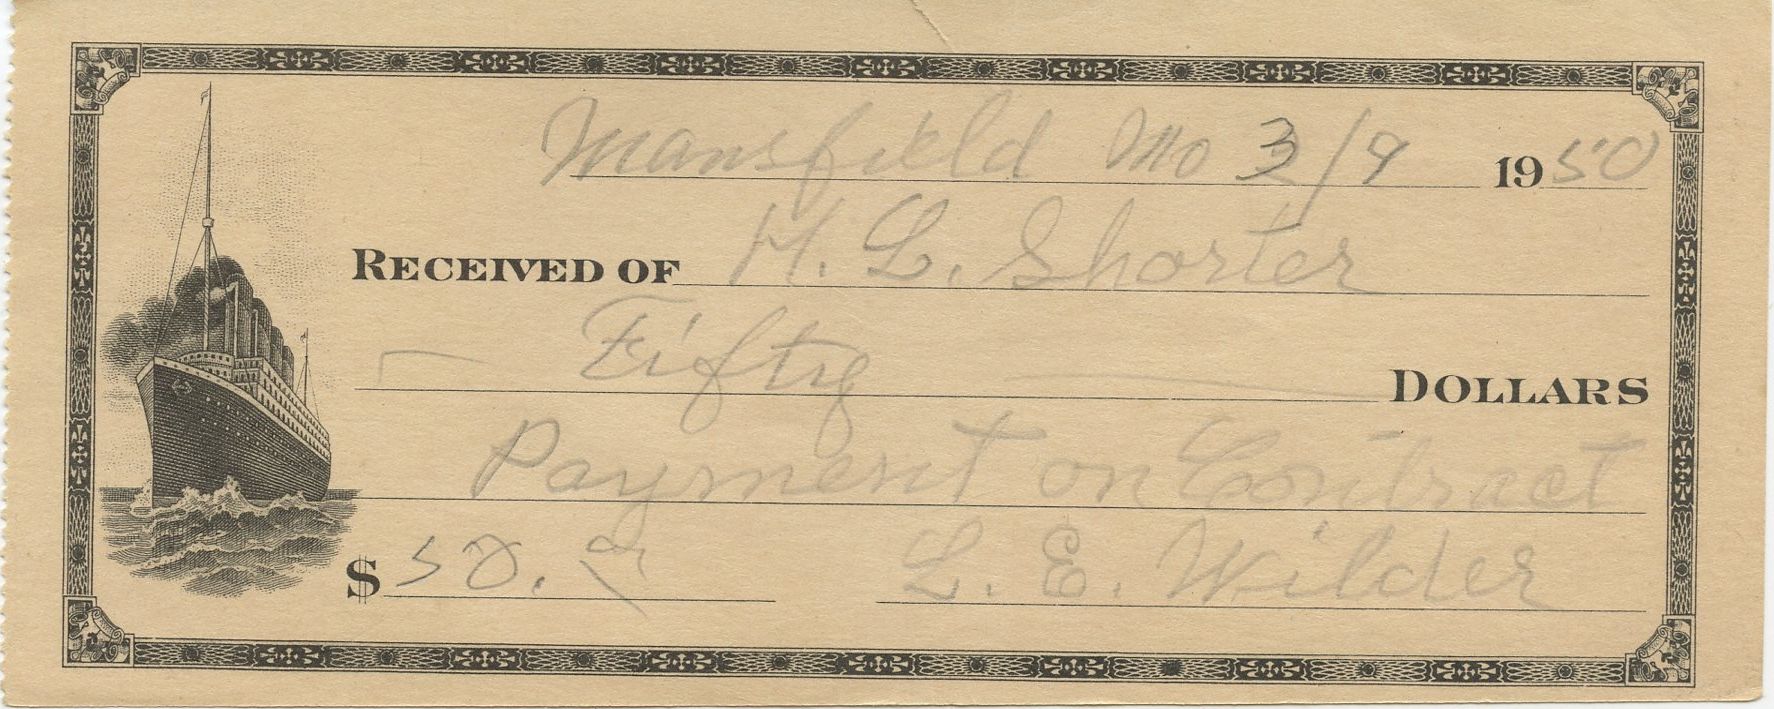 Mansfield Mo 3/9 1950
RECEIVED OF H. L. Shorter
— Fifty — DOLLARS
Payment on Contract
$ 50.
L. E. Wilder